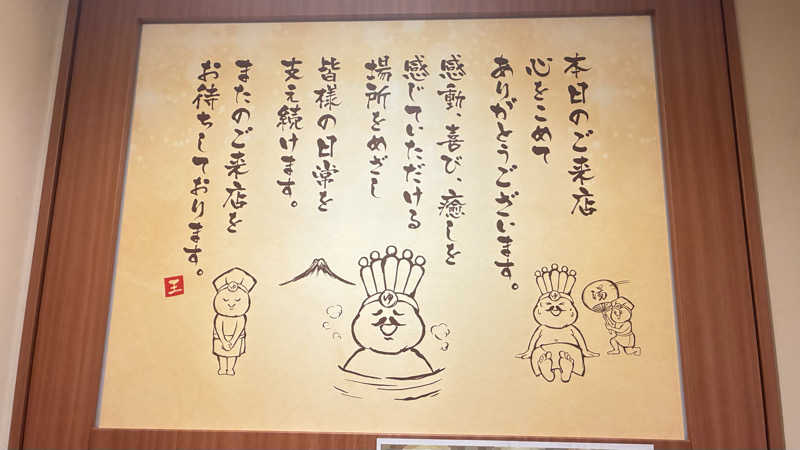 本日のご来店
心をこめて
ありがとうございます。
感動、喜び、癒しを
感じていただける
場所をめざし
皆様の日常を
支え続けます。
またのご来店を
お待ちしております。
王
ゆ
湯